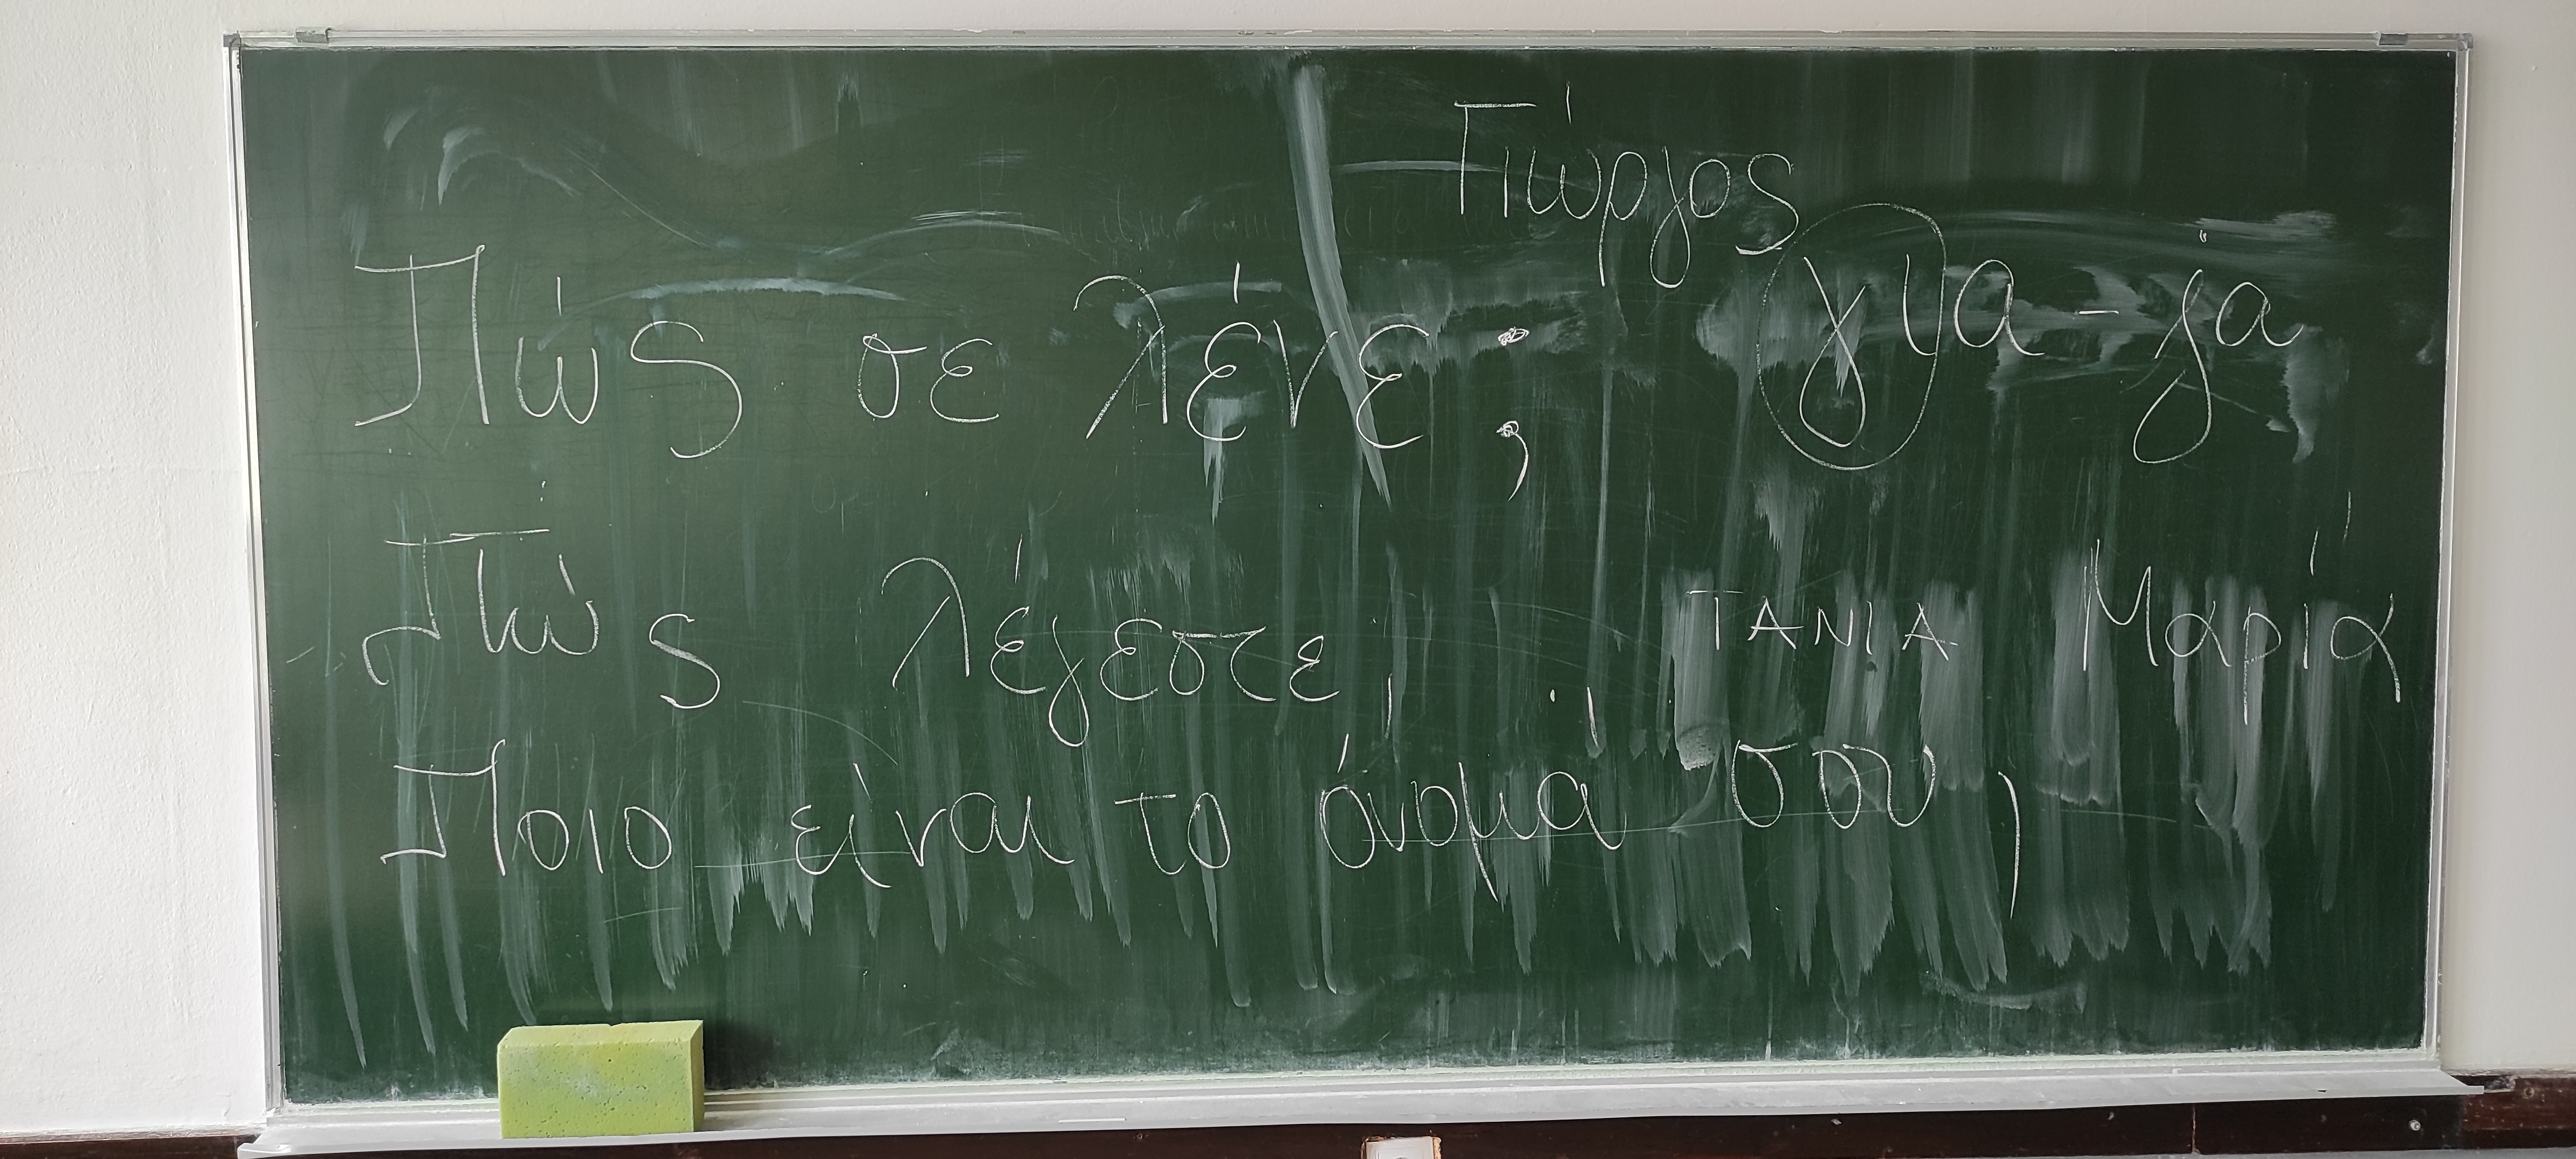 Γιώργος
Πώς σε λένε; για - ja
Πώς λέγεστε; ΤΑΝΙΑ Μαρία
Ποιο είναι το όνομά σου;